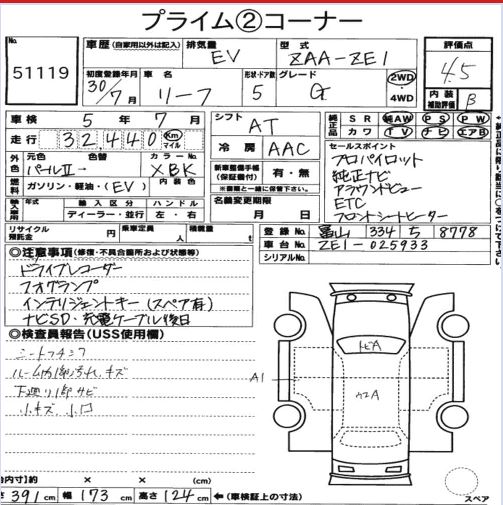 プライム②コーナー
No. 51119
車歴 (自家用以外は記入) 排気量 EV 型式 ZAA-ZE1 評価点 4.5
初度登録年月 30/7月 車名 リーフ 形状・ドア数 5 グレード G 2WD・4WD 内装補助評価 B
車検 5年 7月 シフト AT 純正品 SR 純AW PS PW
走行 32,440 Km マイル 冷房 AAC カワ TV ナビ エアB
外色 元色 色替 カラーNo. セールスポイント
パールⅡ→ XBK プロパイロット
燃料 ガソリン・軽油・(EV) 内装色 新車整備手帳(保証書付) 有・無 純正ナビ
※書類と一緒に保管下さい。 アラウンドビュー
輸入車用 年式 輸入区分 ハンドル 名義変更期限 ETC
ディーラー・並行 左・右 月 日 フロントシートヒーター
リサイクル預託金 円 乗車定員 人 積載量 t 登録No. 富山 334 ち 8778
車台No. ZE1-025933
シリアルNo.
◎注意事項 (修復・不具合箇所および状態等)
ドライブレコーダー
フォグランプ
インテリジェントキー (スペア有)
ナビSD・充電ケーブル後日
◎検査員報告(USS使用欄)
ルーム内 汚れ、キズ
下廻り サビ
小キズ、小凹
A1
内寸)約 × × (cm)
さ 391cm 幅 173cm 高さ 124cm ←(車検証上の寸法)
スペア